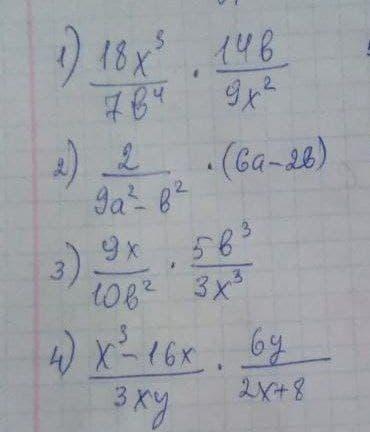 1) 18x³/7b⁴ · 14b/9x²
2) 2/9a²-b² · (6a-2b)
3) 9x/10b² · 5b³/3x³
4) x³-16x/3xy · 6y/2x+8